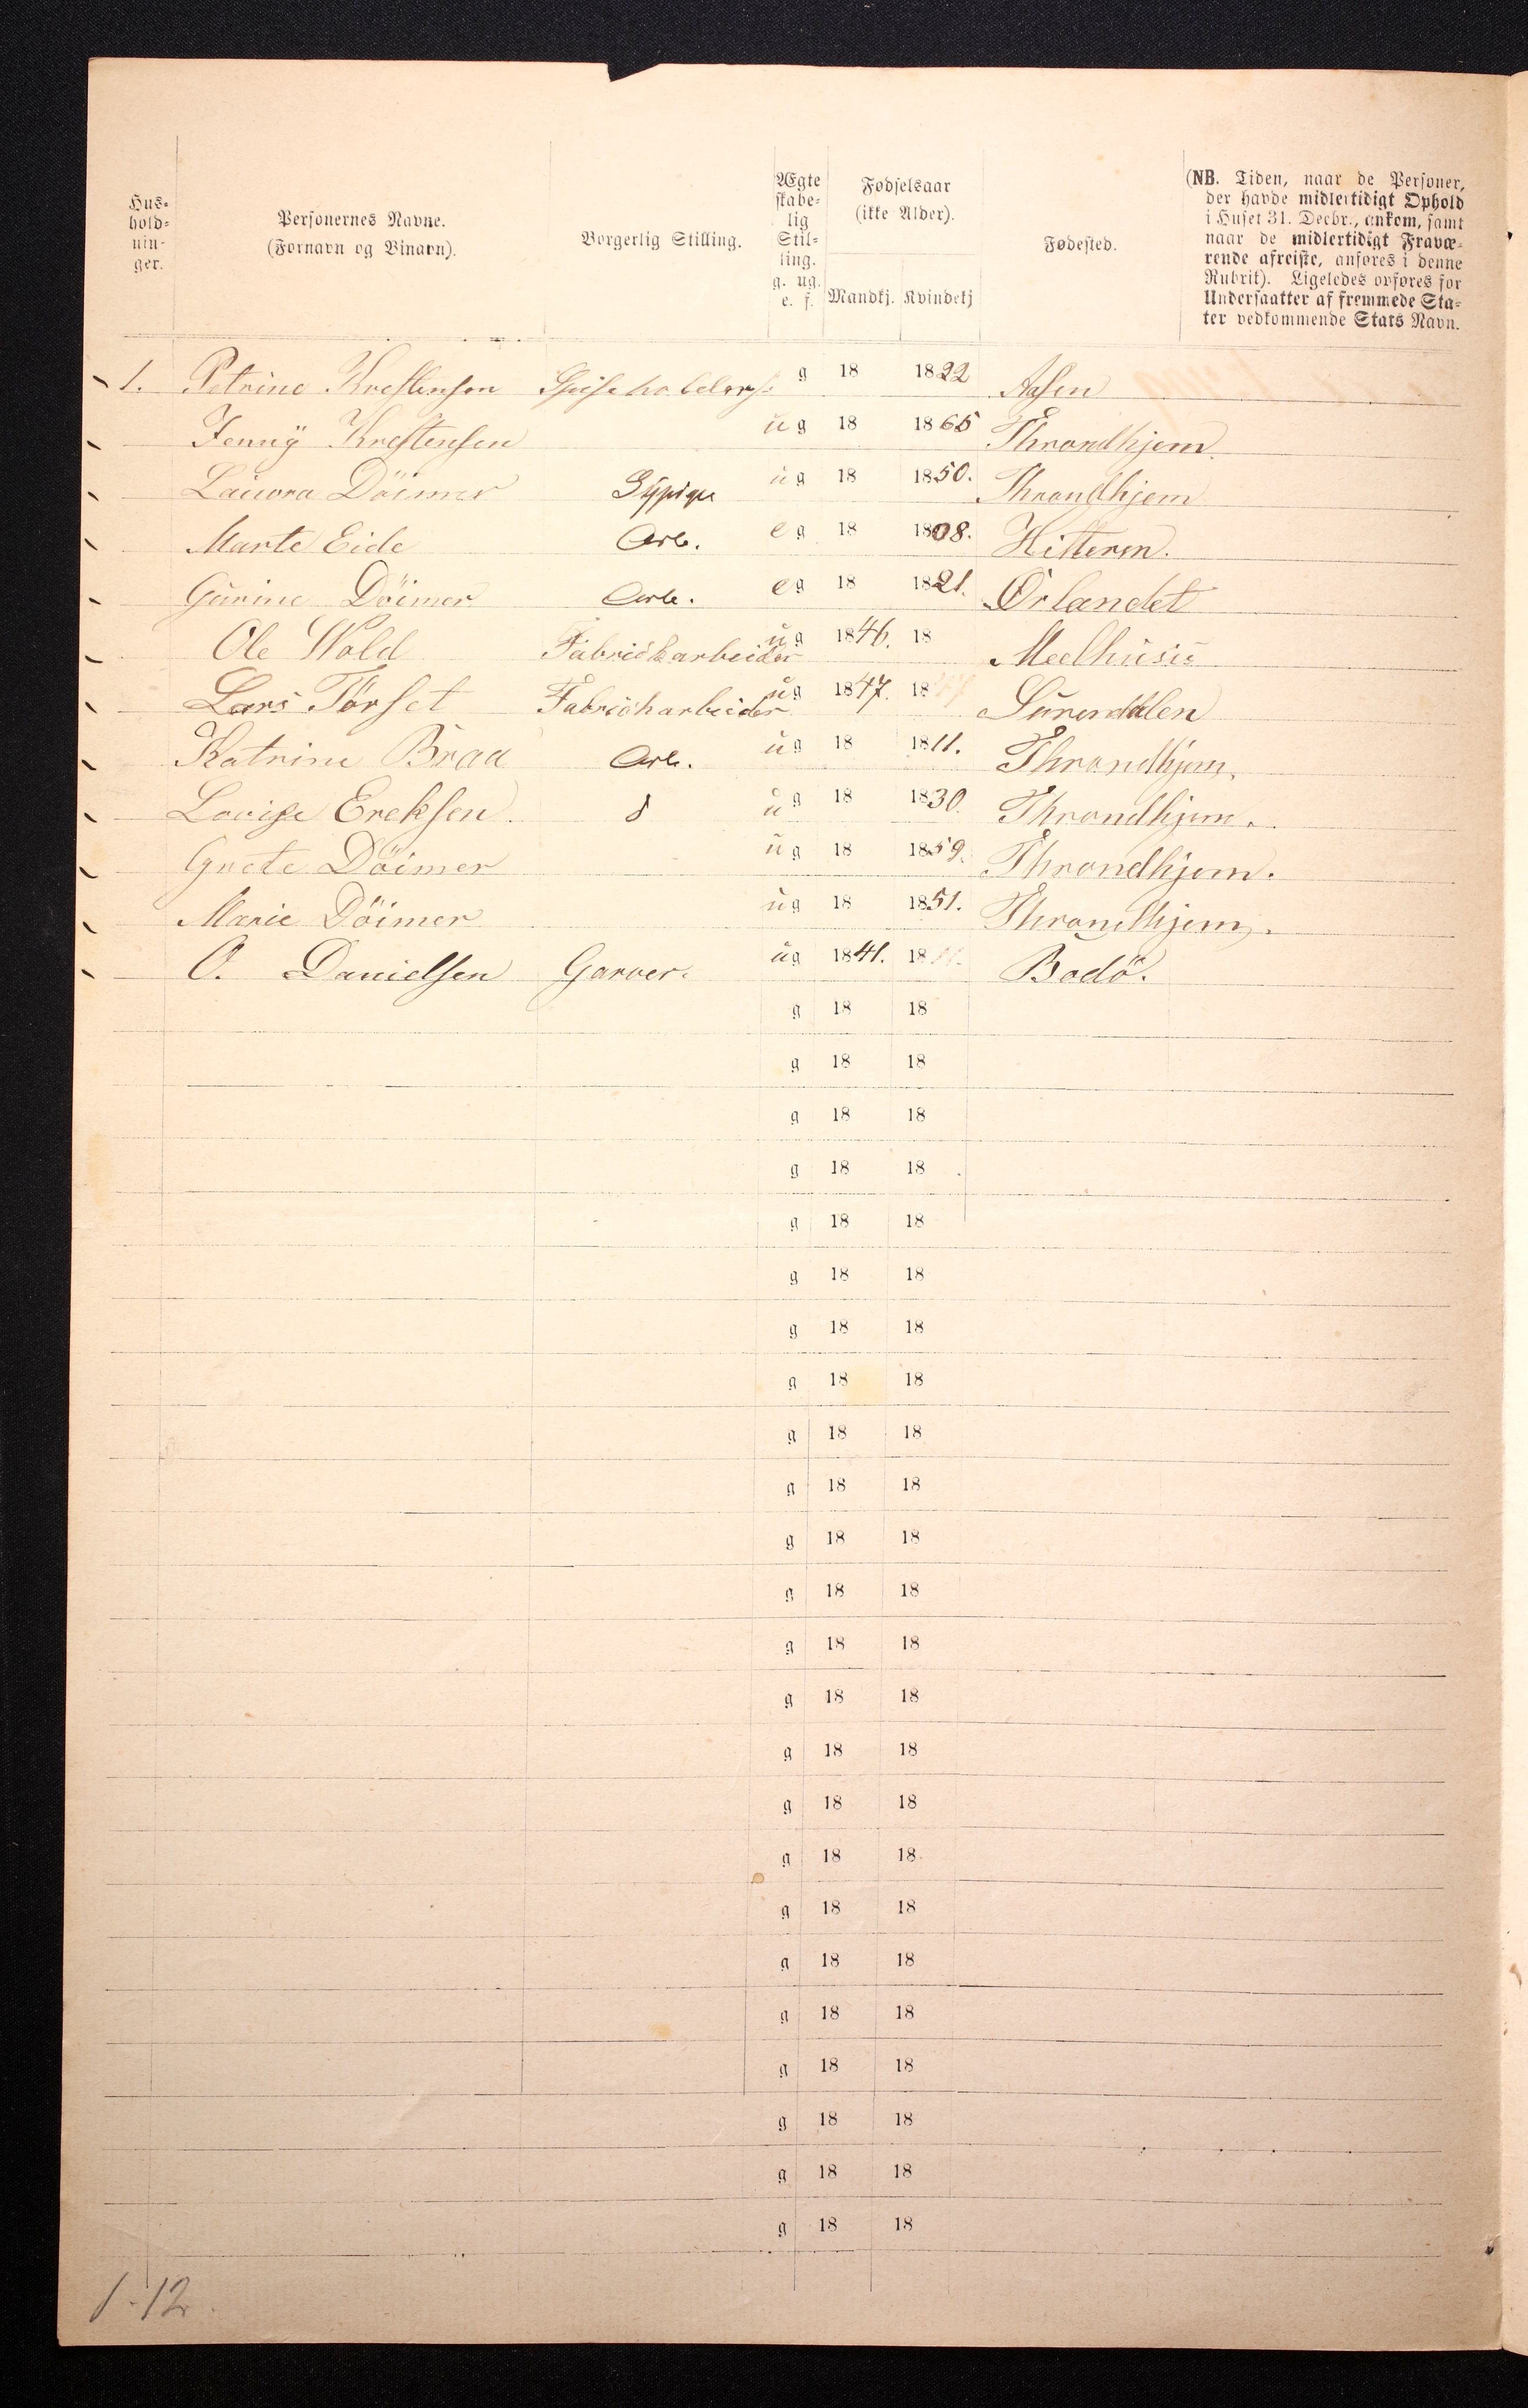 Hus-
hold-
nin-
ger.
Personernes Navne.
(Fornavn og Binavn).
Borgerlig Stilling.
Ægte
skabe-
lig
Stil-
ling.
g. ug.
e. f.
Fødselsaar
(ikke Alder).
Mandkj. Kvindekj
Fødested.
(NB. Tiden, naar de Personer,
der havde midlertidigt Ophold
i Huset 31. Decbr., ankom, samt
naar de midlertidigt Fravæ-
rende afreiste, anføres i denne
Rubrik). Ligeledes opføres for
Undersaatter af fremmede Sta-
ter vedkommende Stats Navn.
1. Petrine Krestensen g 18 1822 Aasen
Jenny Krestensen ug 18 1865 Throndhjem
Laurra Döimer Sypige ug 18 1850. Throndhjem
Marte Eide Arb. eg 18 1808. Hitteren.
Gurine Döimer Arb. eg 18 1821. Örlandet
Ole Wold Fabrickarbeider ug 1846. 18 Meelhusis
Lars Törset Fabrickarbeider ug 1847. 18 Surendalen
Katrine Braa Arb. ug 18 1811. Throndhjem.
Lovise Ereksen. ug 18 1830. Throndhjem.
Grete Döimer ug 18 1859. Throndhjem.
Marie Döimer ug 18 1851. Throndhjem.
O. Danielsen Garver. ug 1841. 18 Bodö.
g 18 18
g 18 18
g 18 18
g 18 18
g 18 18
g 18 18
g 18 18
g 18 18
g 18 18
g 18 18
g 18 18
g 18 18
g 18 18
g 18 18
g 18 18
g 18 18
g 18 18
g 18 18
g 18 18
g 18 18
g 18 18
g 18 18
g 18 18
g 18 18
1-12.